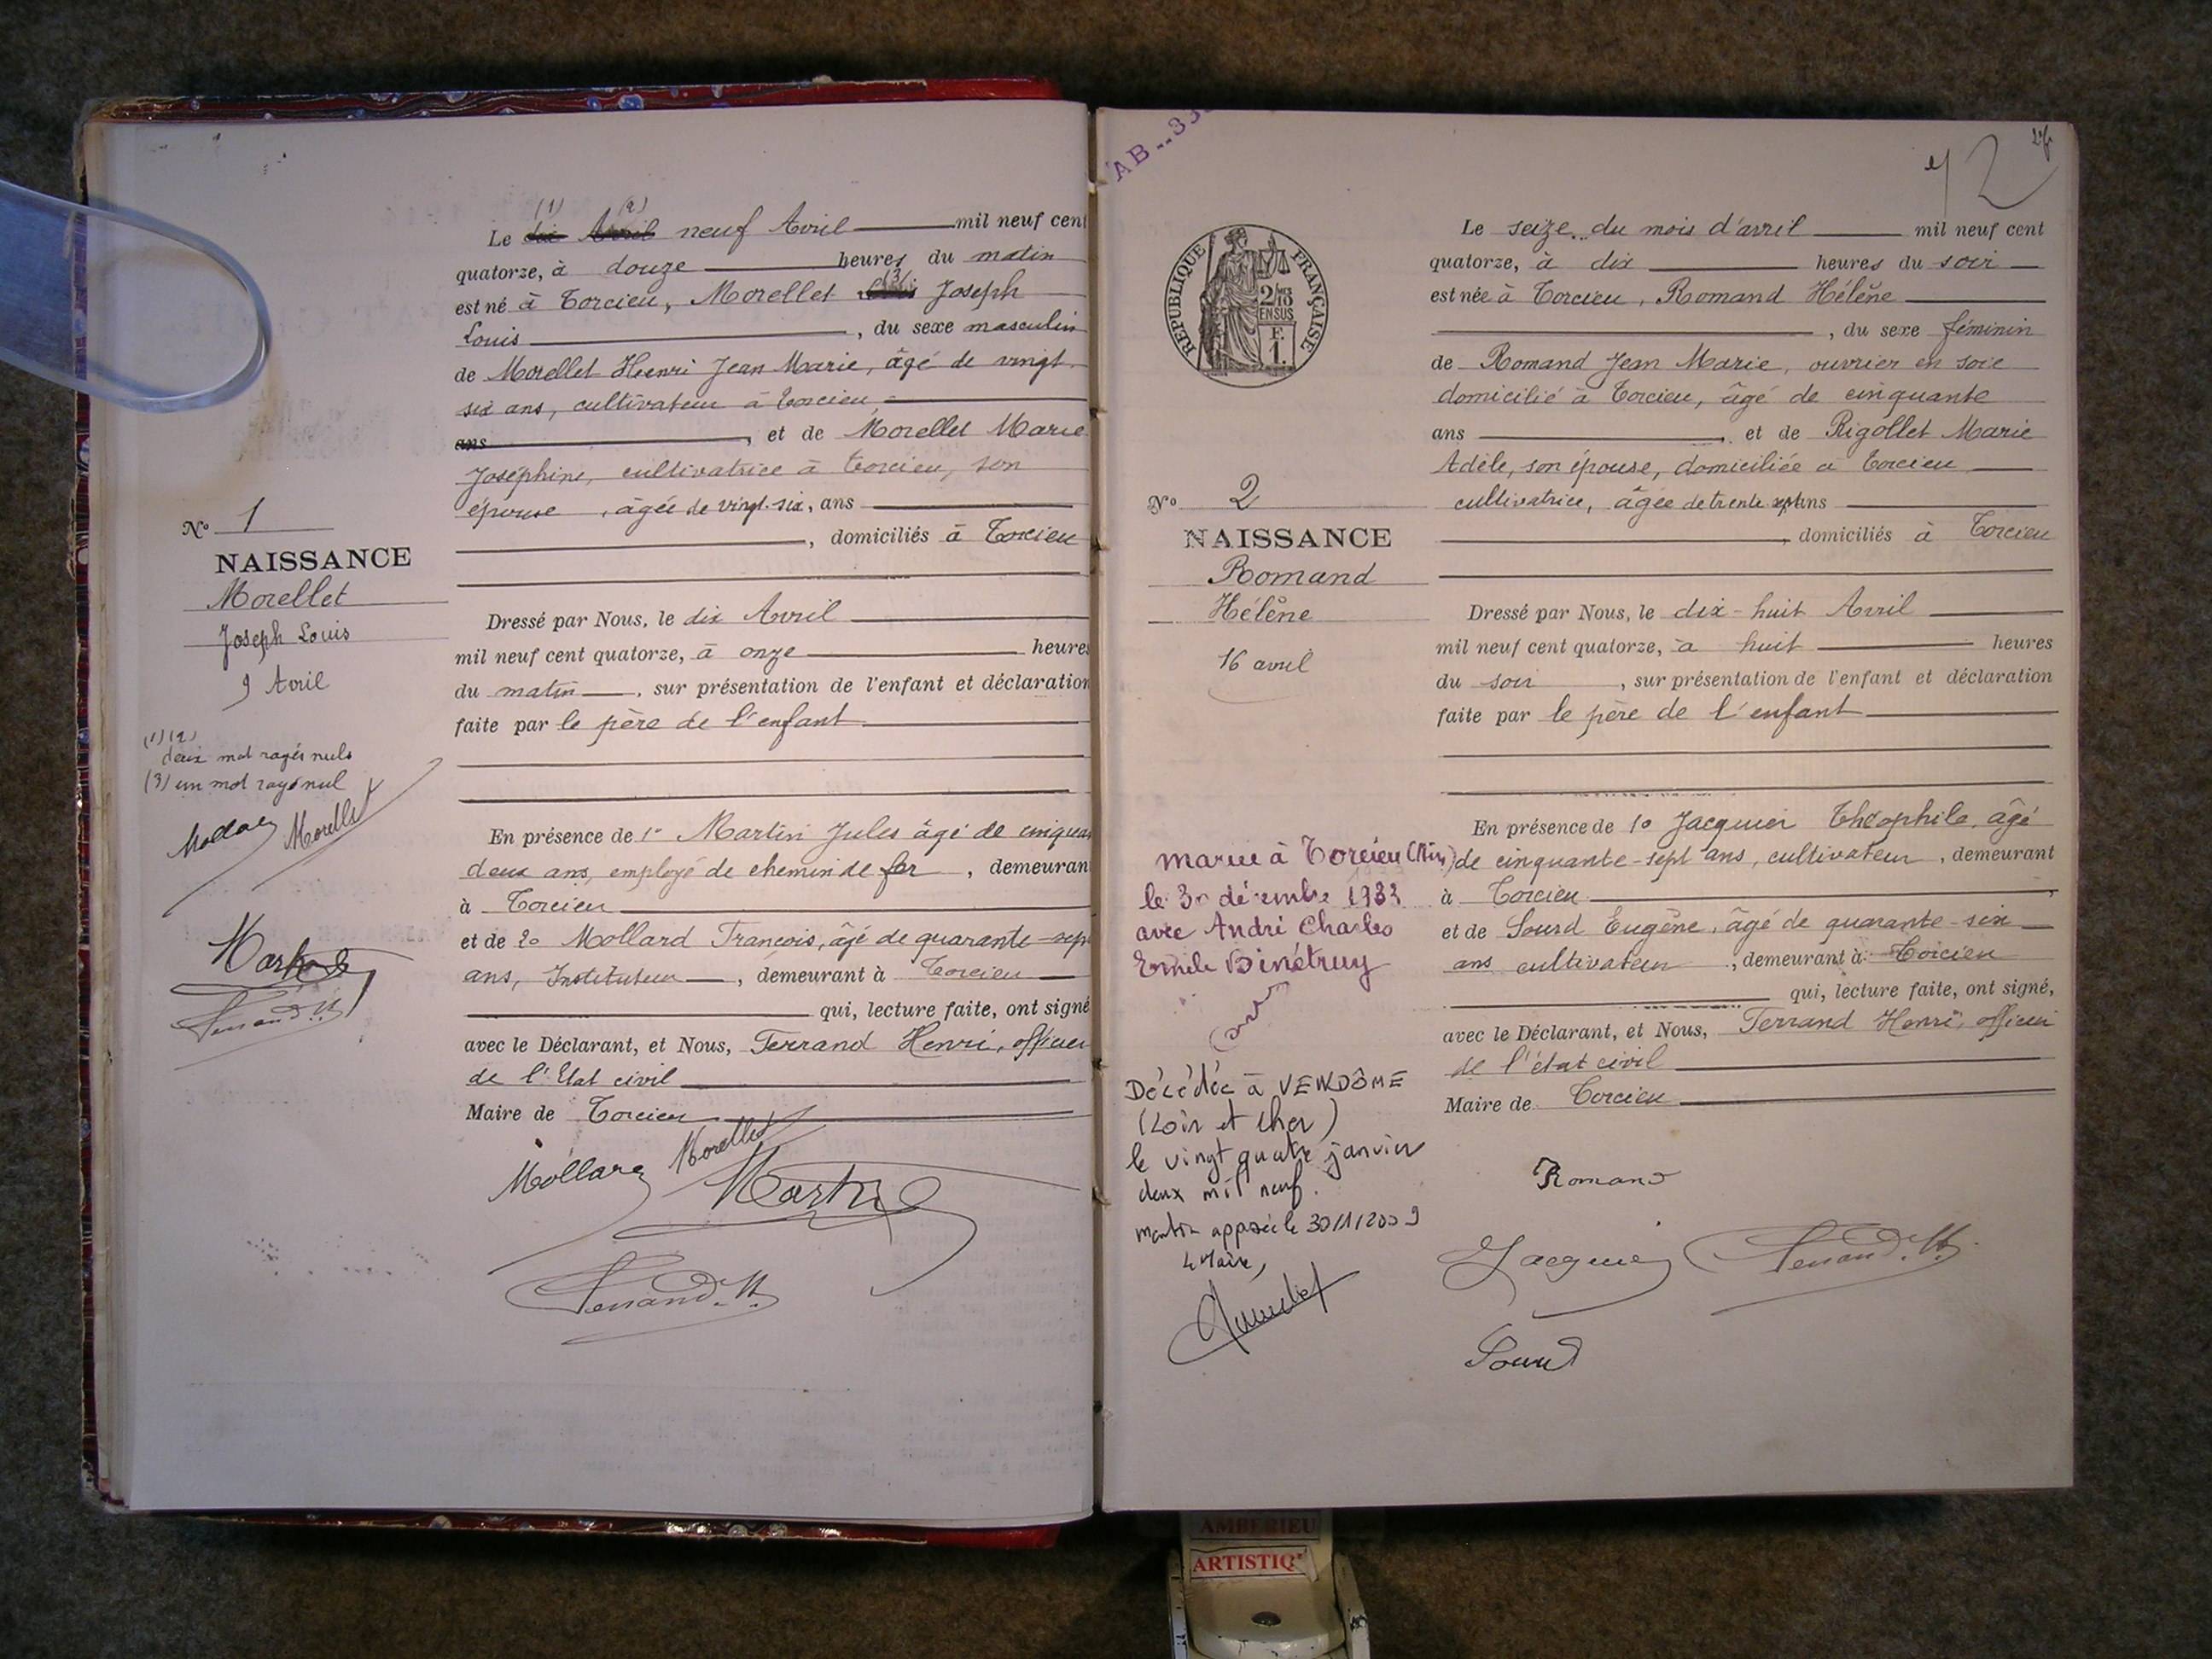 (1) (2)
Le dix Avril neuf Avril mil neuf cent
quatorze, à douze heures du matin
(3)
est né à Torcieu, Morellet Joseph
Louis, du sexe masculin
de Morellet Henri Jean Marie, âgé de vingt-
six ans, cultivateur à Torcieu,
ans, et de Morellet Marie
Joséphine, cultivatrice à Torcieu, son
épouse, âgée de vingt-six, ans
, domiciliés à Torcieu
Dressé par Nous, le dix Avril
mil neuf cent quatorze, à onze heures
du matin, sur présentation de l'enfant et déclaration
faite par le père de l'enfant
En présence de 1º Martin Jules âgé de cinquan
deux ans, employé de chemin de fer, demeuran
à Torcieu
et de 2º Mollard François, âgé de quarante-sep
ans, Instituteur, demeurant à Torcieu
qui, lecture faite, ont signé
avec le Déclarant, et Nous, Ferrand Henri, officier
de l'Etat civil
Maire de Torcieu
Mollard Morellet
Martin
Ferrand. H.
Nº 1
NAISSANCE
Morellet
Joseph Louis
9 Avril
(1) (2)
deux mot rayés nuls
(3) un mot rayé nul
Mollard Morellet
Martin
Ferrand. H
AB..33
42
RÉPUBLIQUE FRANÇAISE
2/10
EN SUS
F.
1.
Nº 2
NAISSANCE
Romand
Hélène
16 avril
mariée à Torcieu (Ain)
le 30 décembre 1933
avec André Charles
Emile Binétruy
Décédée à VENDÔME
(Loir et Cher)
le vingt quatre janvier
deux mil neuf.
mention apposée le 30/11/2009
Le Maire,
Le seize du mois d'avril mil neuf cent
quatorze, à dix heures du soir
est née à Torcieu, Romand Hélène
, du sexe féminin
de Romand Jean Marie, ouvrier en soie
domicilié à Torcieu, âgé de cinquante
ans, et de Rigollet Marie
Adèle, son épouse, domiciliée à Torcieu
cultivatrice, âgée de trente-sept ans
, domiciliés à Torcieu
Dressé par Nous, le dix-huit Avril
mil neuf cent quatorze, à huit heures
du soir, sur présentation de l'enfant et déclaration
faite par le père de l'enfant
En présence de 1º Jacquier Théophile, âgé
de cinquante-sept ans, cultivateur, demeurant
à Torcieu,
et de Sourd Eugène, âgé de quarante-six
ans cultivateur, demeurant à Torcieu
qui, lecture faite, ont signé,
avec le Déclarant, et Nous, Ferrand Henri, officier
de l'état civil
Maire de Torcieu
Romand
Jacquier Ferrand. H.
Sourd
AMBERIEU
ARTISTIQ